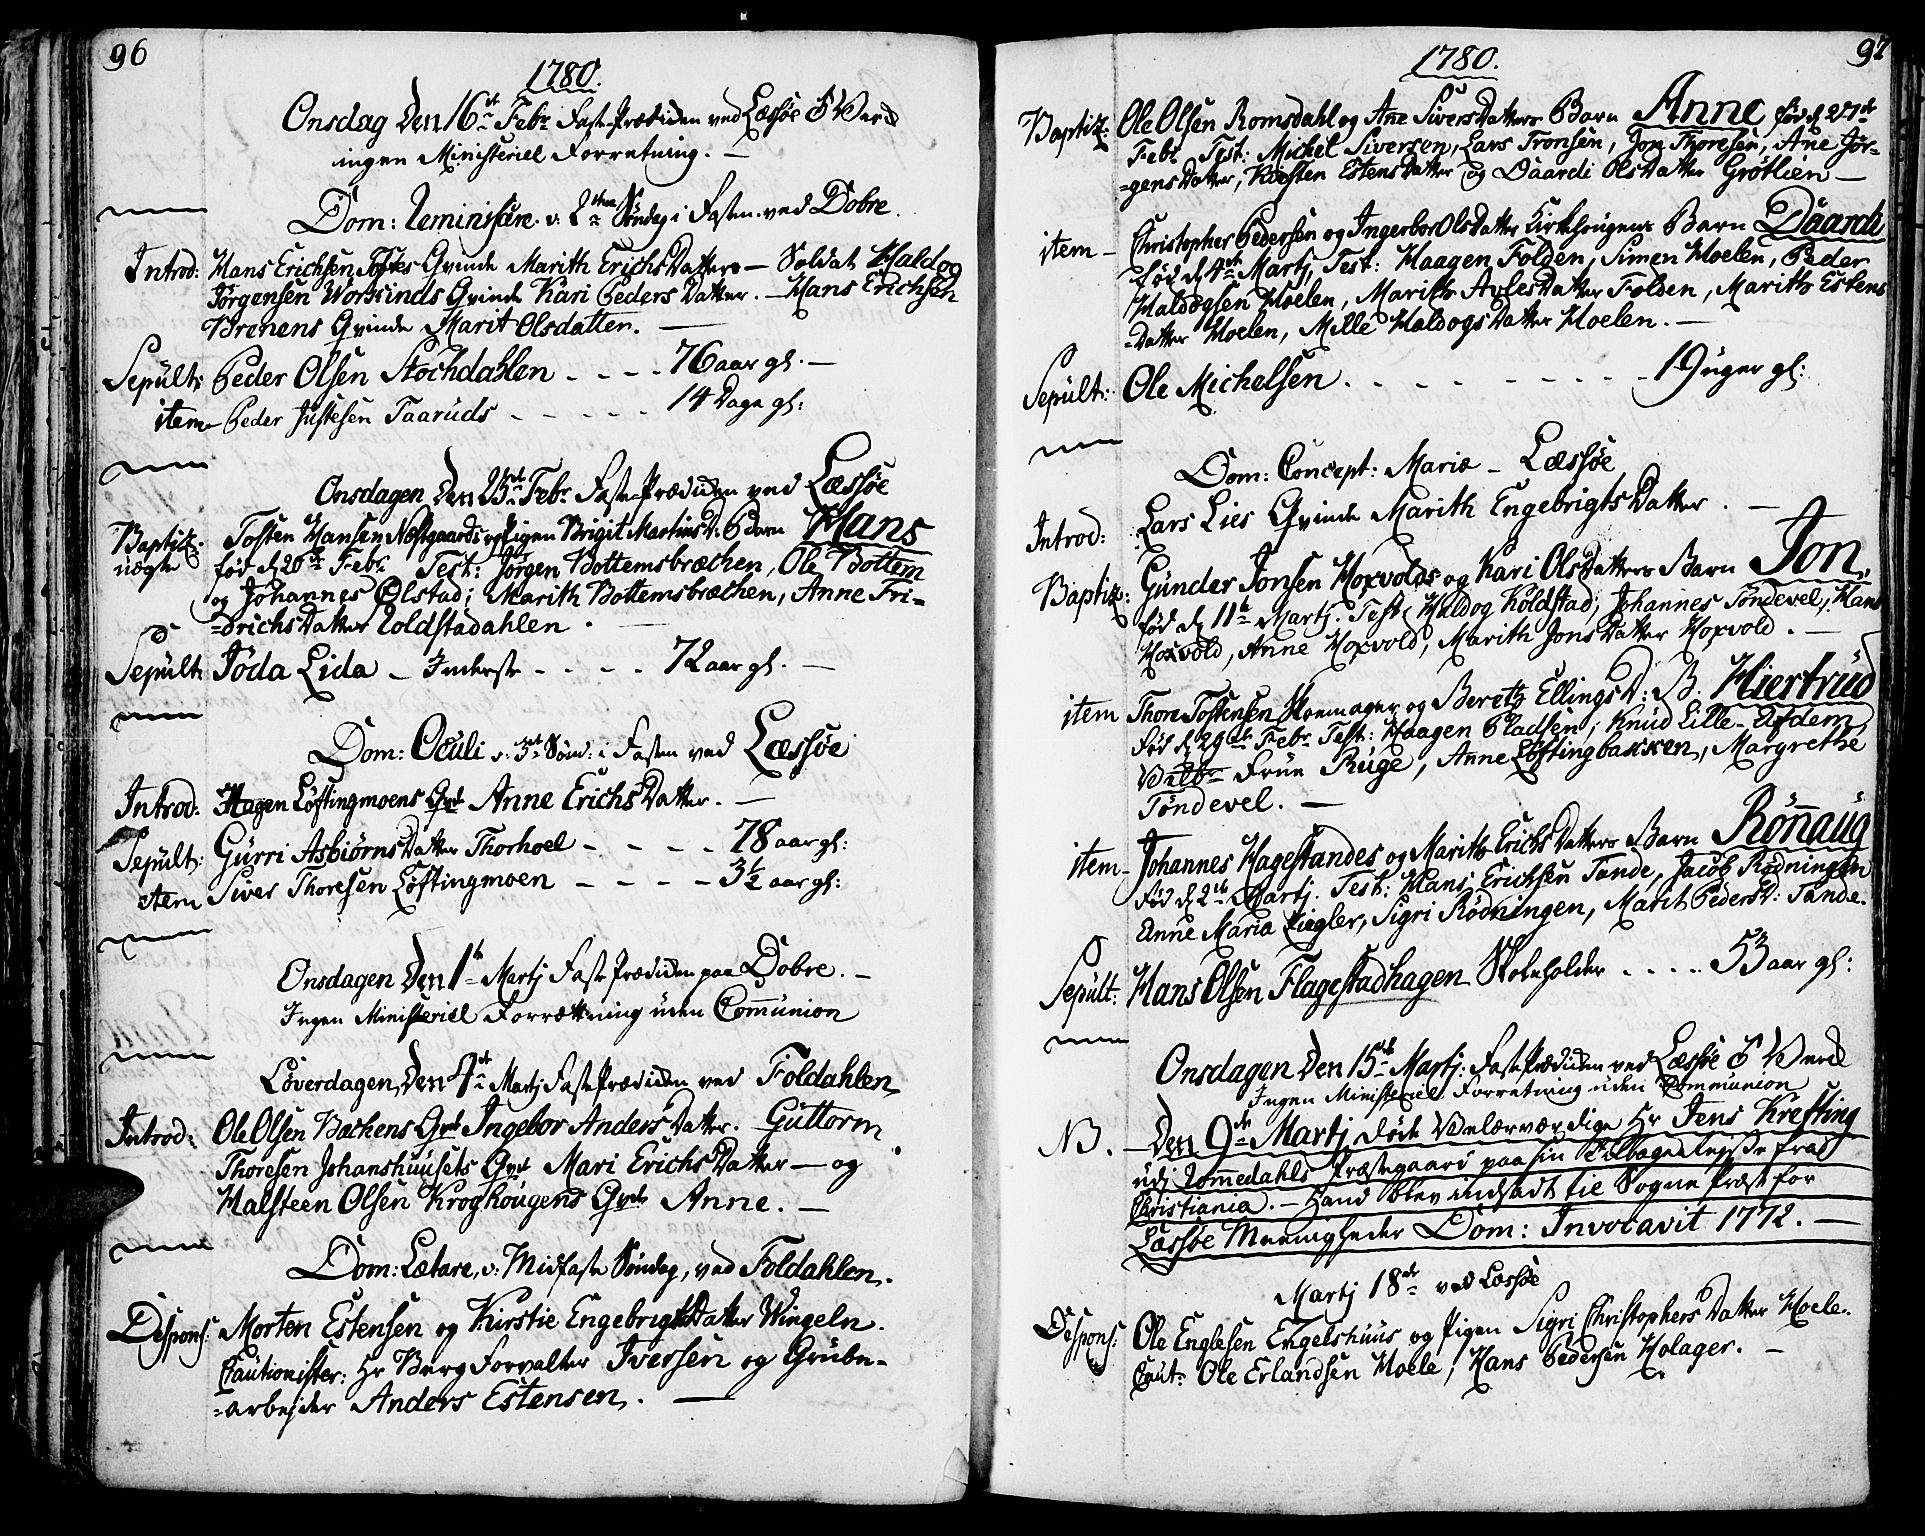 96
1780.
Onsdag Den 16de Febr Faste Prædiken ved Læssøe
ingen Ministeriel Forretning. —
Dom: Reminiscere v: 2den Søndag i Fasten ved Dobre.
Introd: Hans Erichsen Toftes Qvinde Marith Erichs Datter — Soldat Haldog
Jørgensen Qvinde Kari Peders Datter. — Hans Erichsen
Brenens Qvinde Marit Olsdatter. —
Sepult: Peder Olsen Stochdahlen - - - - 76 aar gl. —
item Peder Justesen Taaruds - - - - - 14 Dage gl:
Onsdagen Den 23de Febr Faste Prædiken ved Læssøe
Baptiz: Tosten Hansen Nostgaards og Pigen Brigit Martins D: Barn Hans
uægte født d 20de Febr Test: Jørgen Bottemsbræchen, Ole Bottem
og Johannes Ølstad; Marith Bottemsbræchen, Anne Fri-
=drichs Datter Koldstadahlen. —
Sepult: Jøda Lida — Inderste - - - - 72 aar gl. —
Dom: Oculi v: 3de Sønd: i Fasten ved Læssøe
Introd: Hagen Løftingmoens Qvde Anne Erichs Datter. —
Sepult: Gurri Asbiørns Datter Thorhoel - - - - 78 aar gl:
item Siver Thoresen Løftingmoen - - - - 3½ aar gl:
Onsdagen Den 1te Martj Faste Prædiken paa Dobre. —
Ingen Ministeriel Forrættning uden Comunion
Løverdagen Den 4de Martj Faste Prædiken ved Foldahlen
Introd: Ole Olsen Bachens Qvde Ingebor Anders Datter. Guttorm
Thoresen Johanshuusets Qvde Mari Erichs Datter — og
Halsteen Olsen Kroghougens Qvde Anne. —
Dom: Lætare, v: Midfaste Søndag, ved Foldahlen.
Despons: Morten Estensen og Kirstie Engebrigts Datter Wingeln.
Cautionister: Hr Berg Forvalter Iversen og Grube-
=arbejder Anders Estensen. —
97
1780.
Baptiz: Ole Olsen Romsdahl og Ane Sivers Datters Barn Anne født d 27de
Febr Test: Michel Siversen, Lars Tronsen, Jon Thoresen, Ane Jør-
=gens Datter, Kiesten Estens Datter og Daardi Ols Datter Grøtlien —
item — Christopher Pedersen og Ingerbor Ols Datter Kirkehougens Barn Daardi
født d 4de Martj, Test: Haagen Folden, Simen Moelen, Peder
Haldogsen Moelen, Marith Avles Datter Folden, Marith Estens
=Datter Moelen, Mille Haldogs Datter Moelen. —
Sepult: Ole Michelsen - - - - - - - - 19 uger gl:
Dom: Concept: Mariæ — Læssøe
Introd: Lars Lies Qvinde Marith Engebrigts Datter. —
Baptiz: Gunder Jonsen Hoxvolds og Kari Ols Datters Barn Jon,
født d 11te Martj. Test: Haldog Koldstad, Johannes Tøndevel, Hans
Hoxvold, Anne Hoxvold, Marith Jons Datter Hoxvold. —
item Thore Tostensen Skomager og Bereth Ellings D: B. Hiertrud
født d 29de Febr Test: Haagen Pladsen, Knud Lille-Afdem,
Frue Ruge, Anne Løftingbakken, Margrethe
Tøndevel. —
item — Johannes Hagestandes og Marith Erichs Datters Barn Rønnaug
født d 2de Martj. Test: Hans Erichsen Tande, Jacob Rødningen
Anne Maria Ziegler, Sigri Rødningen, Marit Peders D: Tande.
Sepult: Hans Olsen Flagestadhagen Skoleholder - - - - 53 aar gl:
Onsdagen Den 15de Martj: Faste Prædiken ved Læssøe
Ingen Ministeriel Forretning uden Communion
NB. — Den 9de Martj døde Velærværdige Hr Jens Krefting
udj Romedahls Præstegaard paa sin Tilbage Rejsse fra
Christiania. — Hand blev indsadt til Sogne Præst for
Læssøe Menigheder Dom: Invocavit 1772. —
Martj 18de ved Læssøe
Despons: Ole Englesen Engelshuus og Pigen Sigri Christophers Datter Moele.
Caut: Ole Erlandsen Moele, Hans Pedersen Holager. —